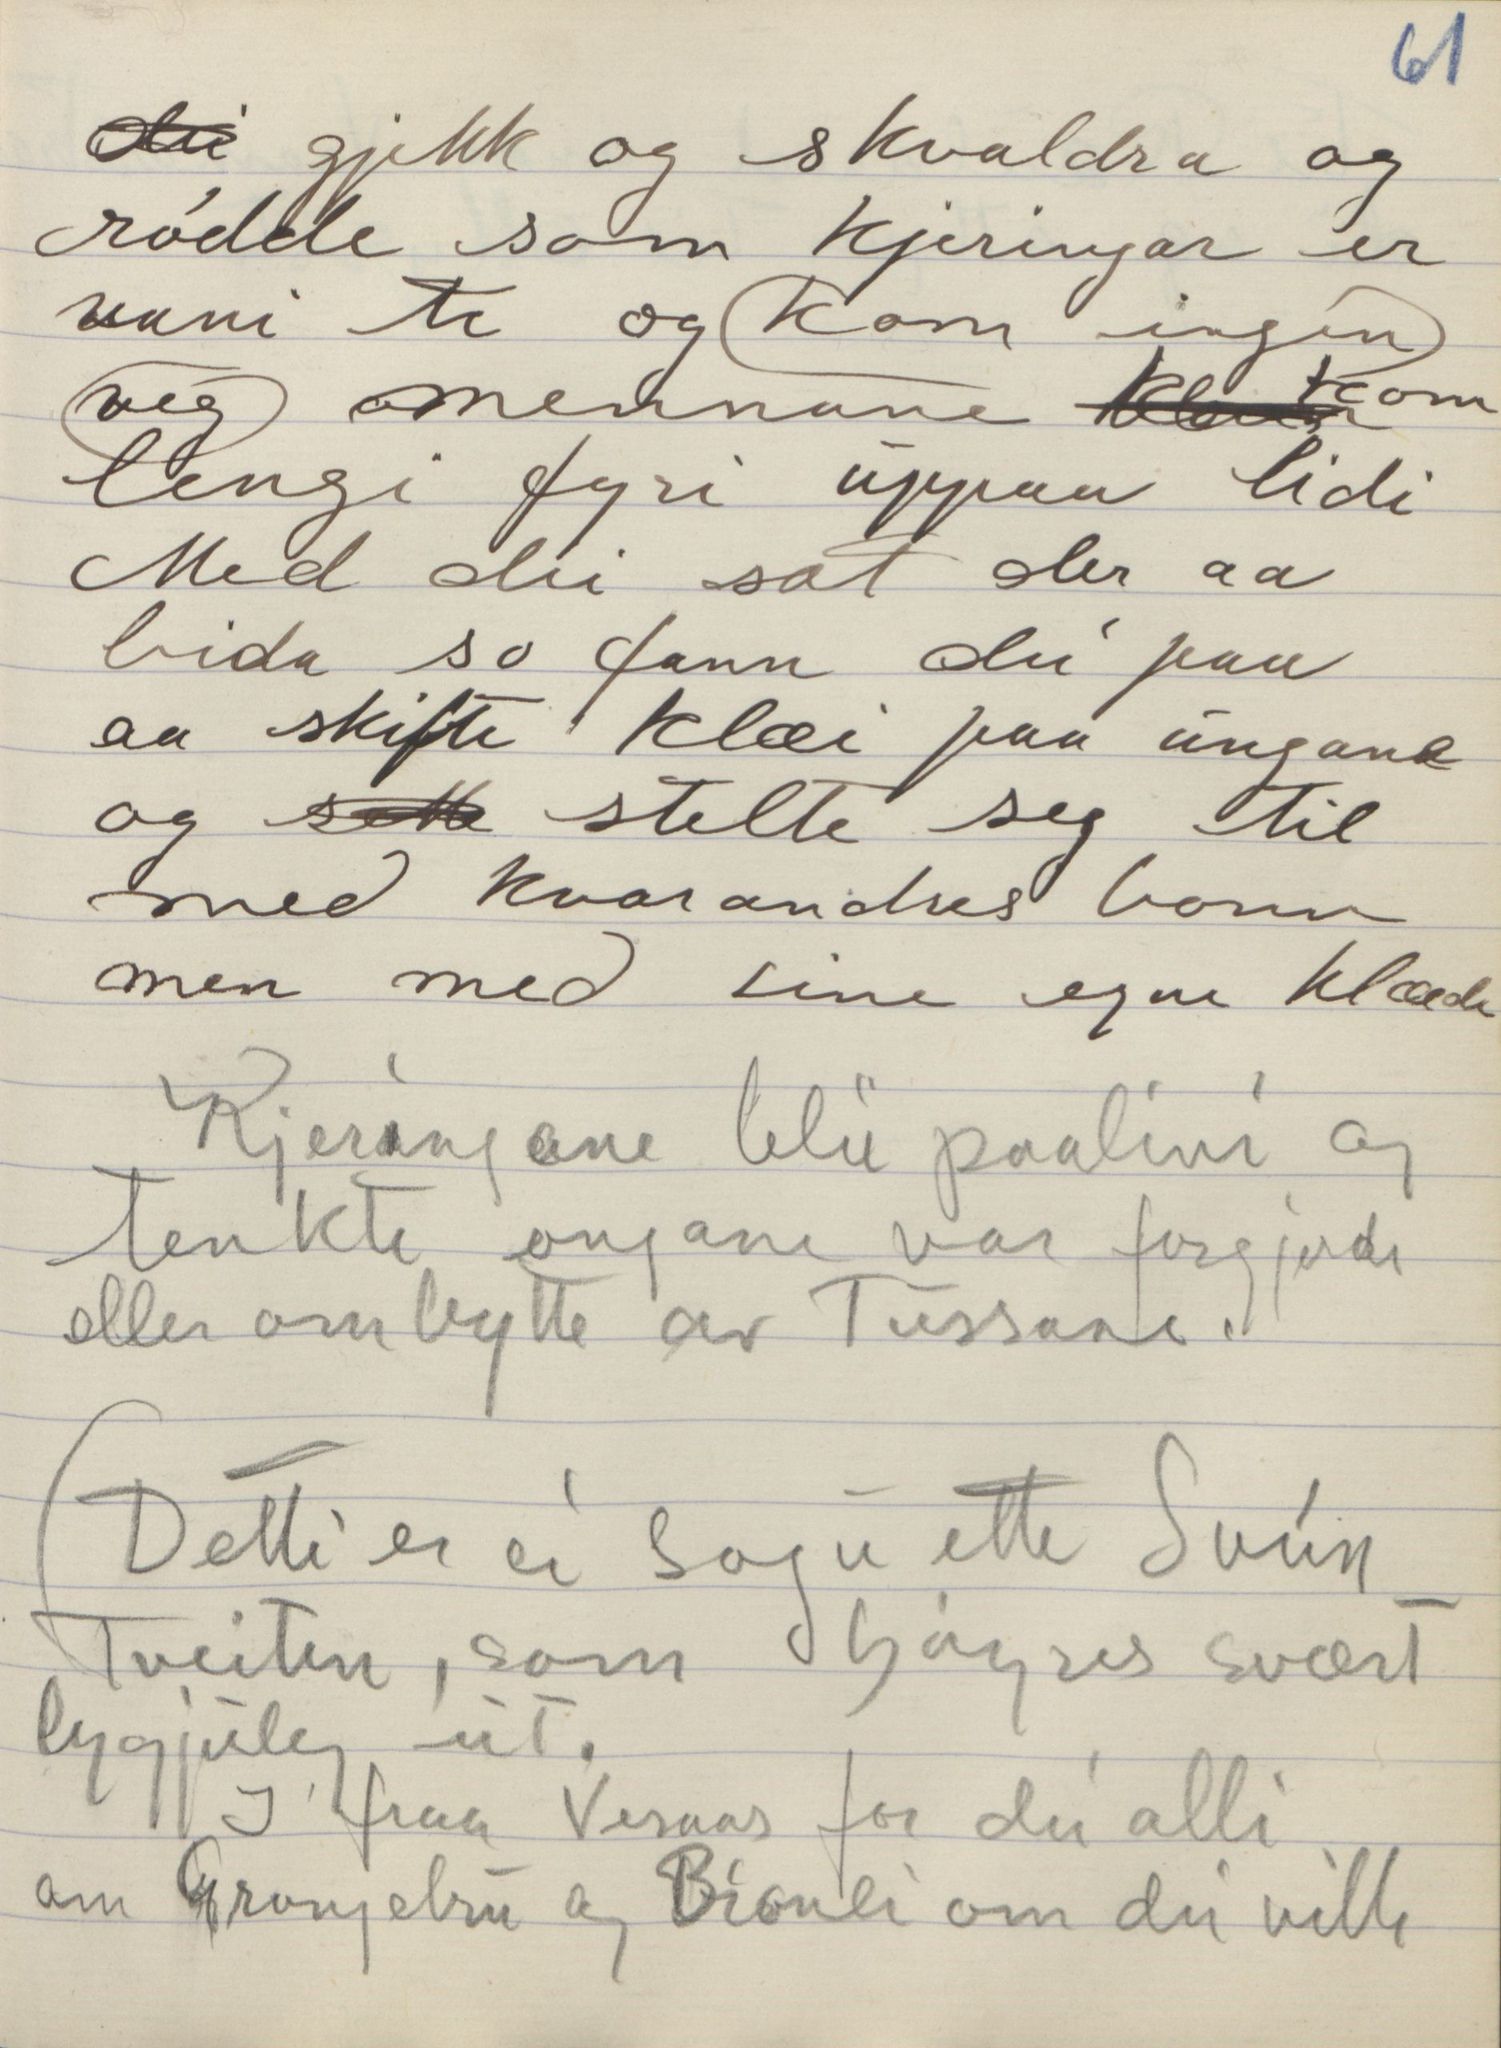 61
dei gjekk og skvaldra og
rødde som kjeringar er
vani te og (kom ingin
veg) mennane kom
lengi fyri uppaa lidi
Med dei sat der aa
bida so fann dei paa
aa skifte klæi paa ungane
og sette stelte seg til
med kvarandres bonn
men med sine egne klæde
Kjeringane blei paalini og
tenkte ongane var forgjorde
eller ombytte av Tussane.
(Detti er ei sogu ette Svein
Tveiten, som høyres svært
lygjuleg út.
I fraa Vesaas for dei alli
om Grongebru og Bionli om dei ville